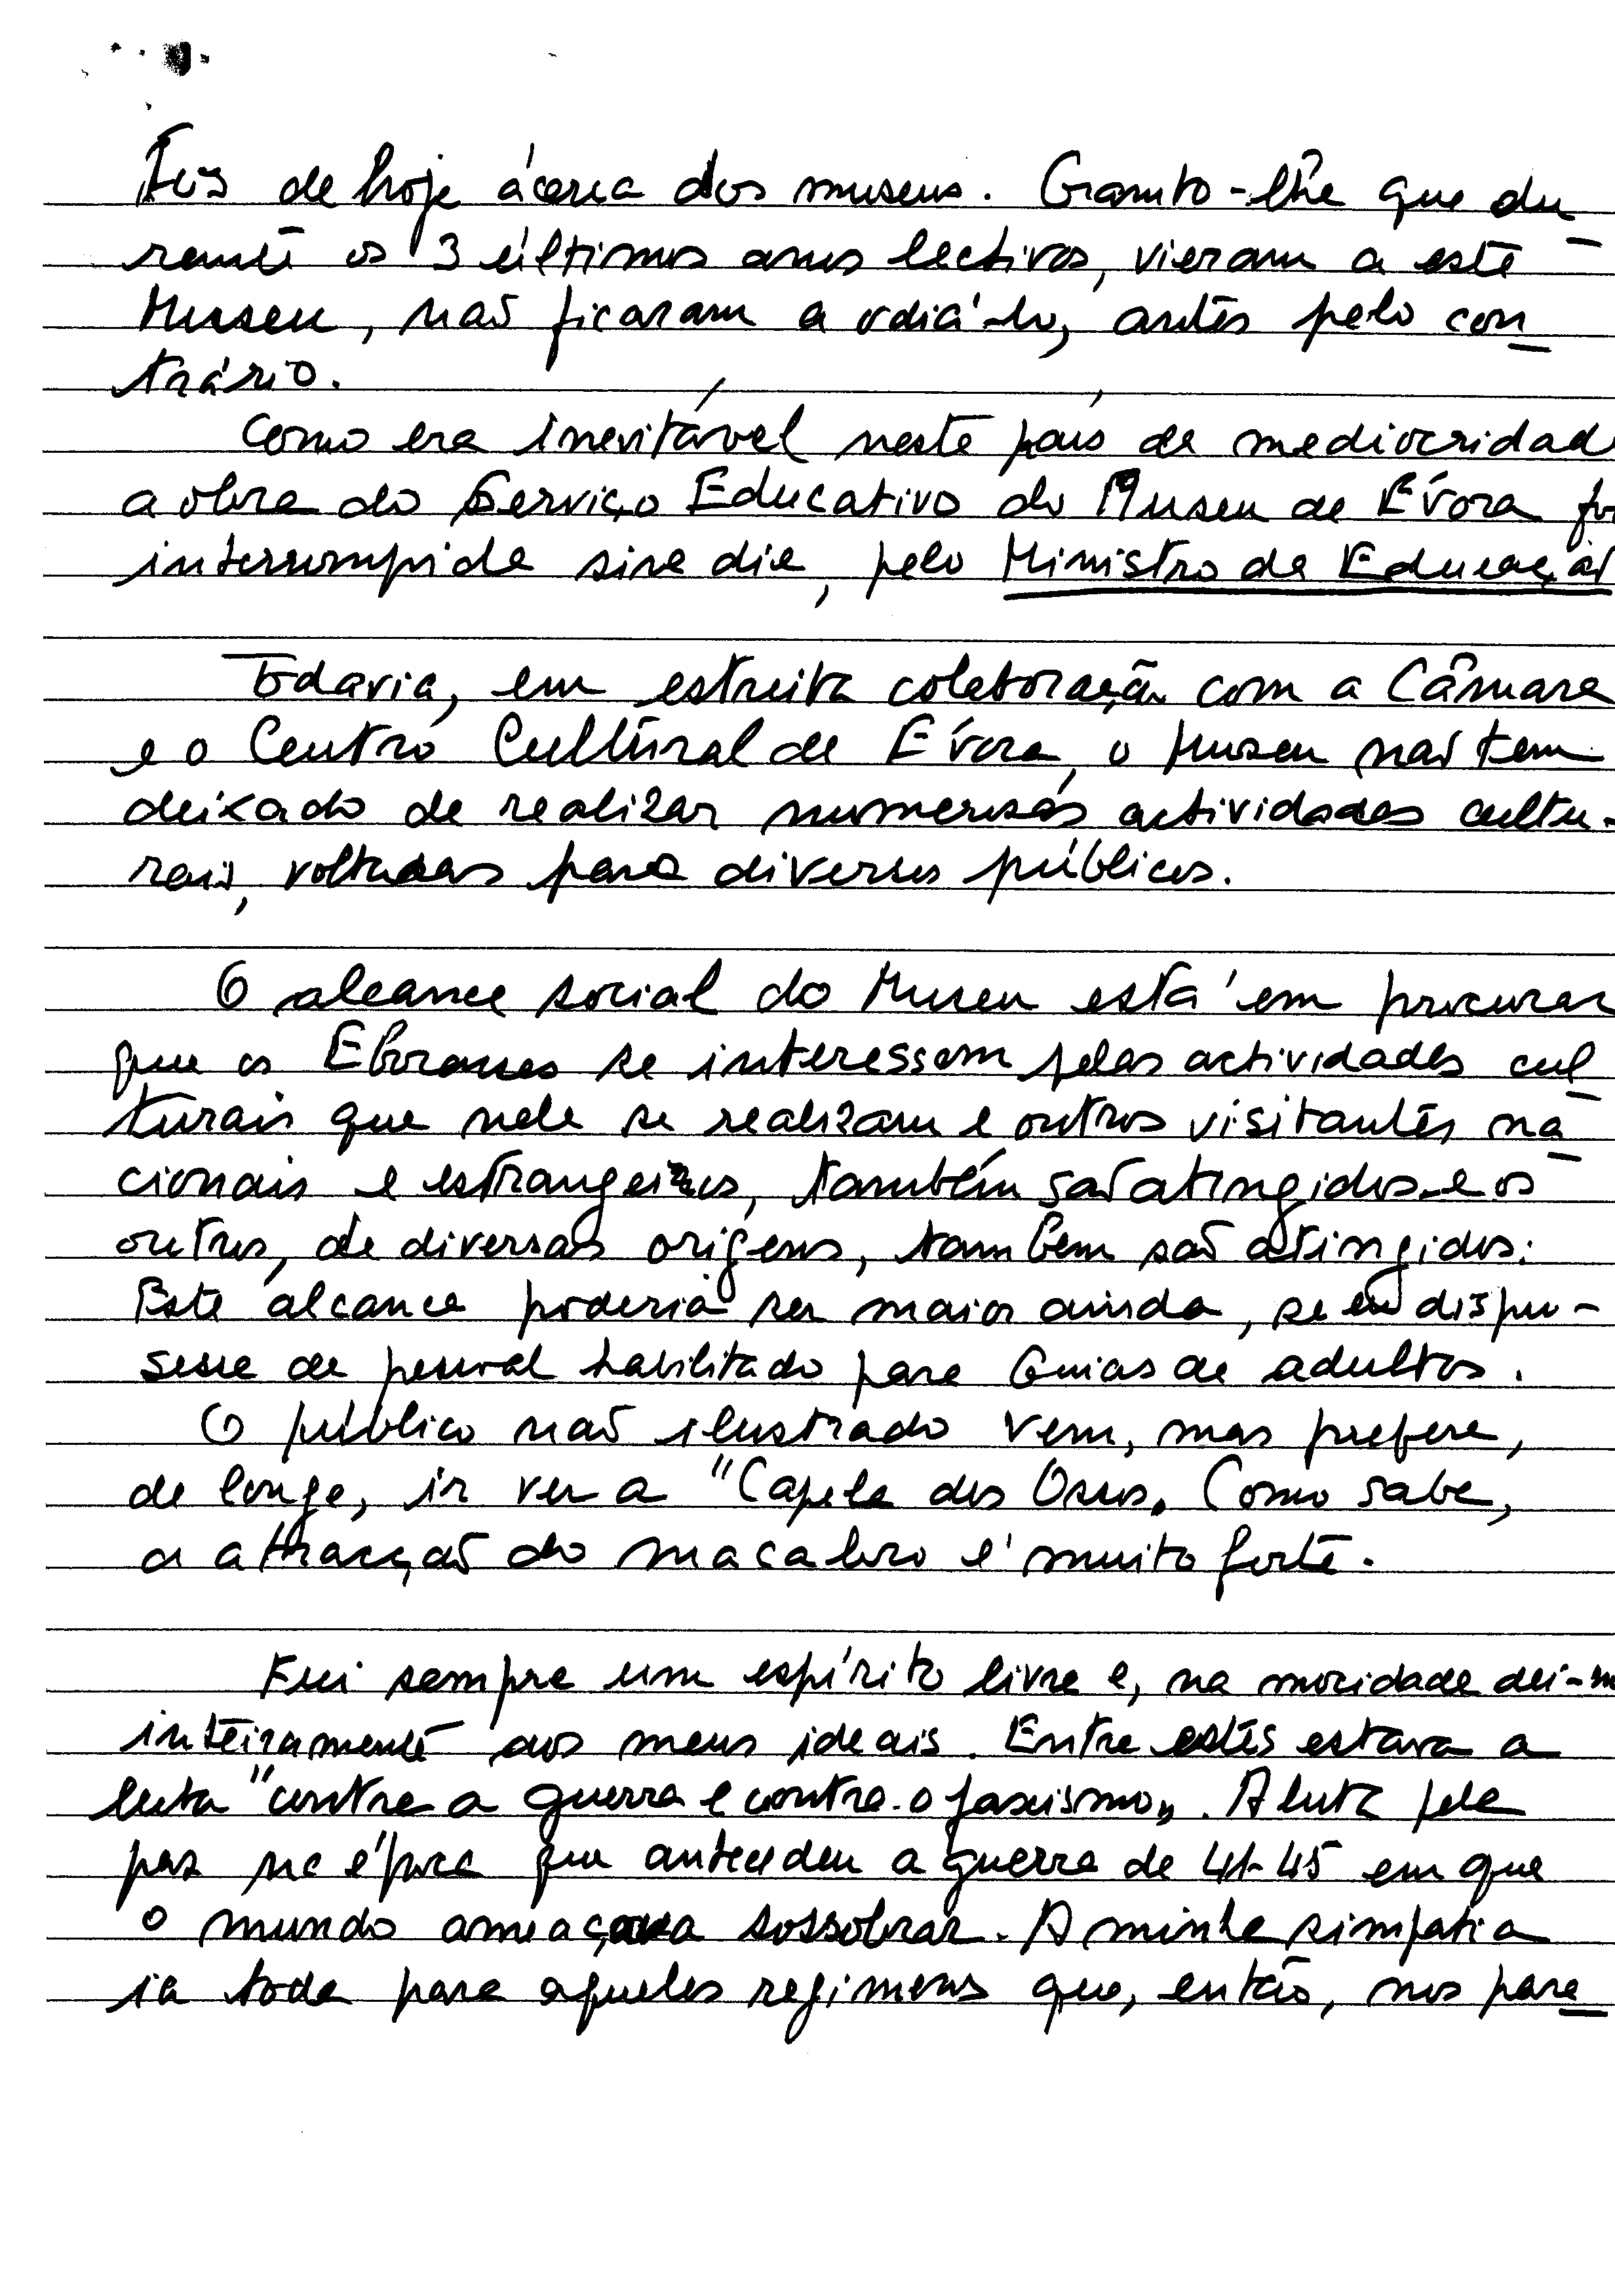 tos de hoje ácerca dos museus. Garanto-lhe que du
rante os 3 últimos anos lectivos, vieram a este
Museu, não ficaram a odiá-lo, antes pelo con
trário.
Como era inevitável neste país de mediocridad
a obra do Serviço Educativo do Museu de Évora fo
interrompida sine die, pelo Ministro da Educação
Todavia, em estreita colaboração com a Câmara
e o Centro Cultural de Évora, o Museu não tem
deixado de realizar numerosas actividades cultu-
rais, voltadas para diversos públicos.
O alcance social do Museu está em procurar
que os Eborenses se interessem pelas actividades cul
turais que nele se realizam e outros visitantes na
cionais e estrangeiros, também são atingidos e os
outros, de diversas origens, também são atingidos.
Este alcance poderia ser maior ainda, se eu dispu-
sesse de pessoal habilitado para Guias de adultos.
O público não ilustrado vem, mas prefere,
de longe, ir ver a "Capela dos Ossos. Como sabe,
a atracção do macabro é muito forte.
Fui sempre um espírito livre e, na mocidade dei-m
inteiramente aos meus ideais. Entre estes estava a
luta "contra a guerra e contra o fascismo". A luta pela
paz na época que antecedeu a guerra de 41-45 em que
o mundo ameaçava sossobrar. A minha simpatia
ia toda para aqueles regimens que, então, nos pare